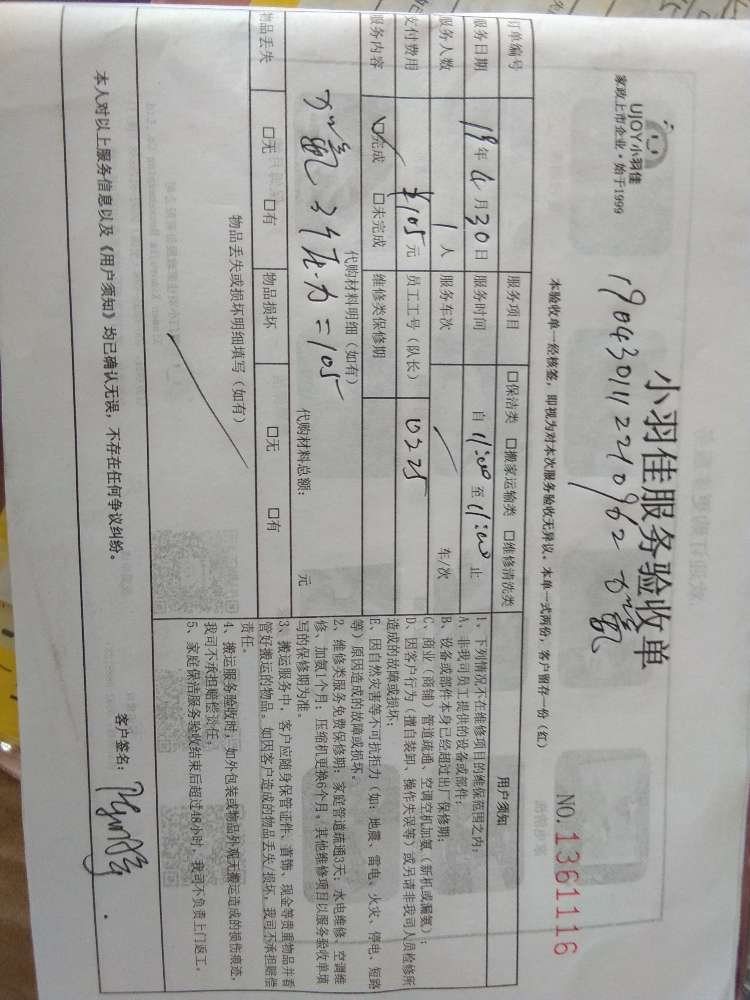 UJOY小羽佳
家政上市企业·始于1999
小羽佳服务验收单
190430112210962 加氟
本验收单一经核签，即视为对本次服务验收无异议。本单一式两份，客户留存一份（红）
NO.1361116
订单编号
服务项目 □保洁类 □搬家运输类 □维修清洗类
服务日期 19年4月30日 服务时间 自11:00至11:00止
服务人数 1人 服务车次 车/次
支付费用 ¥105元 员工工号（队长） 0225
服务内容 ☑完成 □未完成 维修类保修期
代购材料明细（如有）
代购材料总额： 元
物品丢失 □无 □有 物品损坏 □无 □有
物品丢失或损坏明细填写（如有）
用户须知
1、下列情况不在维修项目的维保范围之内：
A、非我司员工提供的设备或部件；
B、设备或部件本身已经超过出厂保修期；
C、商业（商铺）管道疏通、空调空机加氨（新机或漏氨）；
D、因客户行为（擅自装卸、操作失误等）或另请非我司人员检修所
造成的故障或损坏；
E、因自然灾害等不可抗拒力（如：地震、雷电、火灾、停电、短路
等）原因造成的故障或损坏。
2、维修类服务免费保修期：家庭管道疏通3天；水电维修、空调维
修、加氨1个月；压缩机更换6个月。其他维修项目以服务验收单填
写的保修期为准。
3、搬运服务中，客户应随身保管证件、首饰、现金等贵重物品并看
管好搬运的物品。如因客户造成的物品丢失/损坏，我司不承担赔偿
责任。
4、搬运服务验收时，如外包装或物品外观无搬运造成的损伤痕迹，
我司不承担赔偿责任。
5、家庭保洁服务验收结束后超过48小时，我司不负责上门返工。
本人对以上服务信息以及《用户须知》均已确认无误，不存在任何争议纠纷。
客户签名：